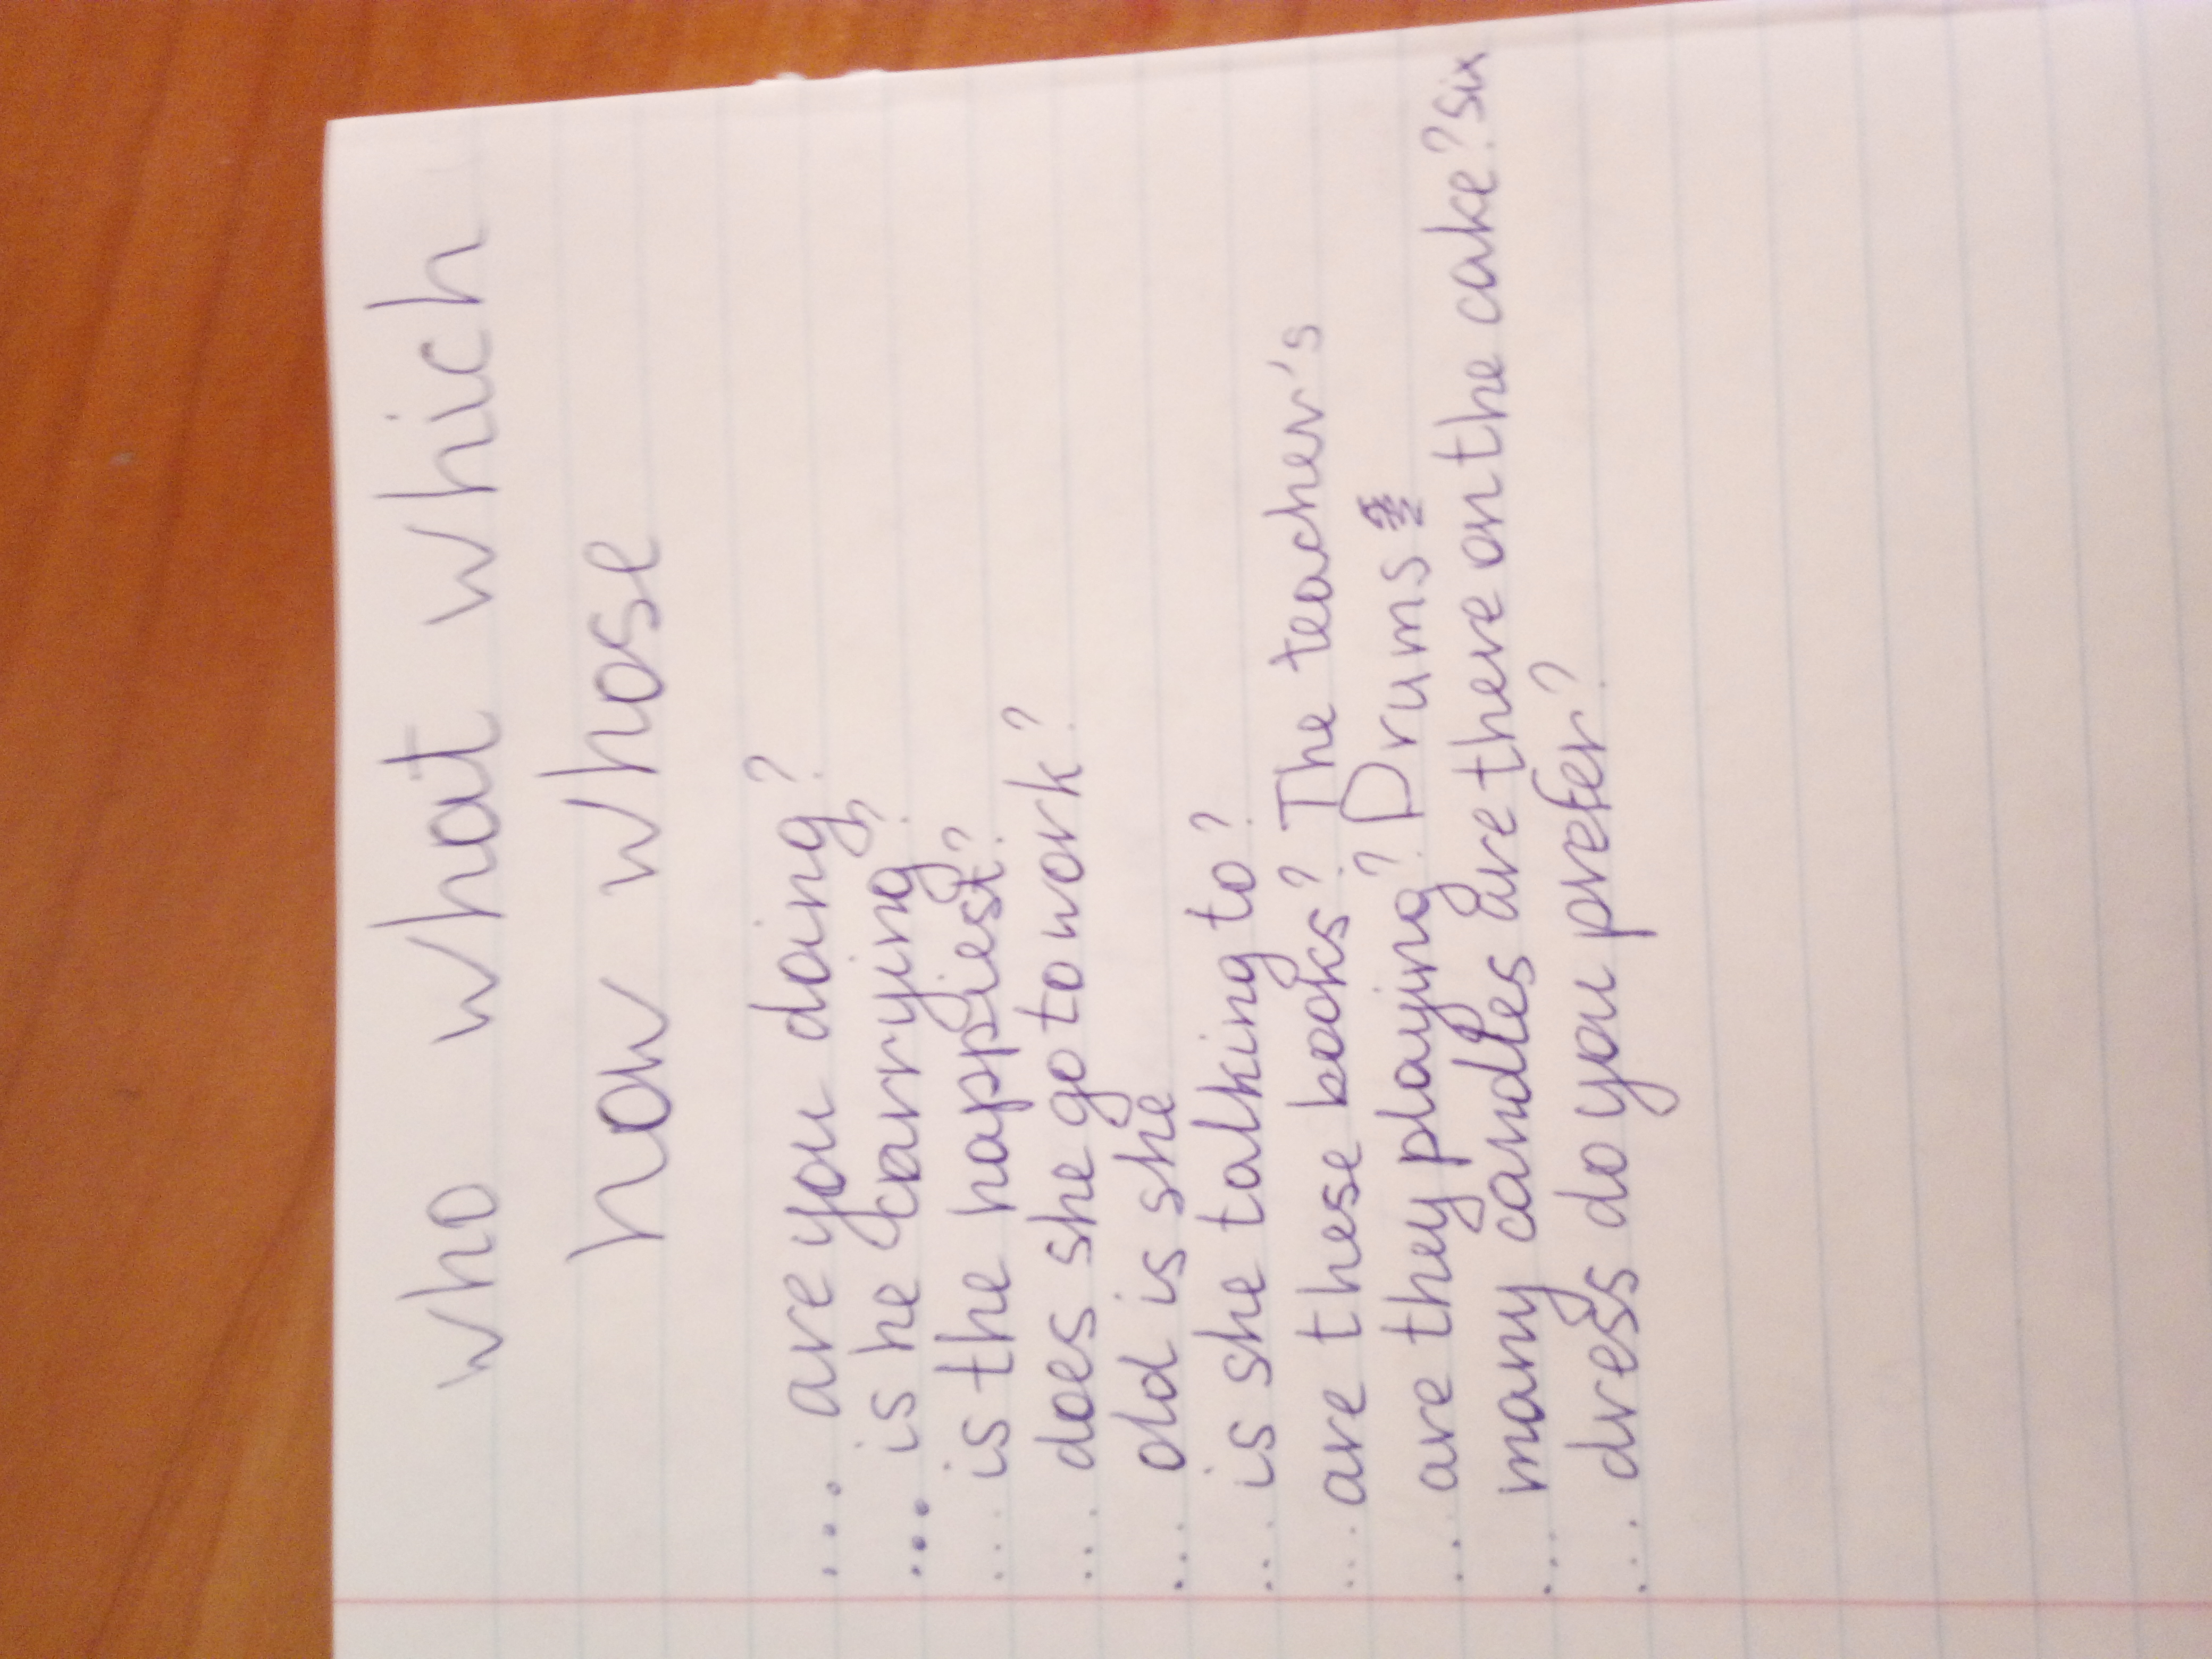 who what which
how whose
.... are you doing?
.... is he carrying?
... is the happiest?
... does she go to work?
... old is she
... is she talking to?
... are these books? The teacher's
... are they playing? Drums
... many candles are there on the cake? six
... dress do you prefer?